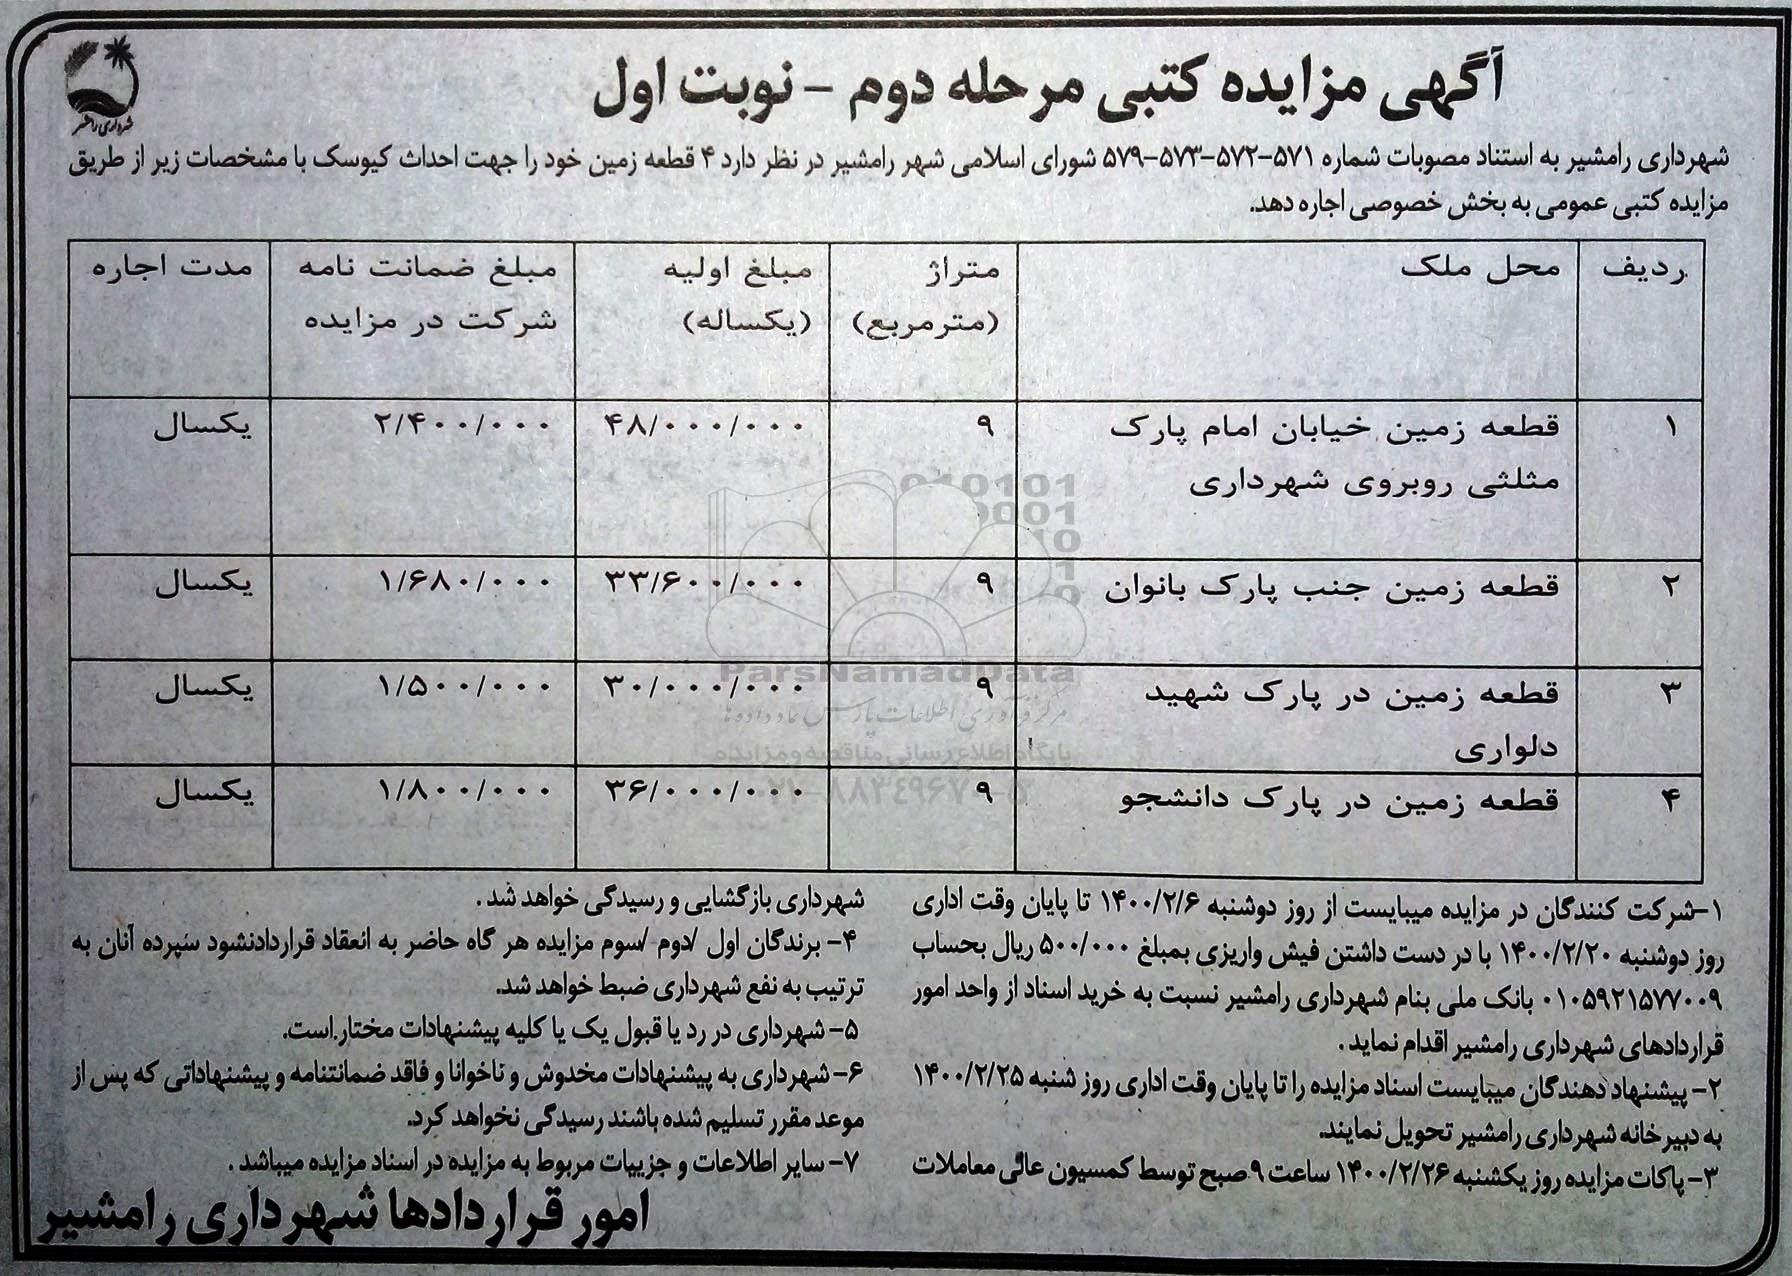 شهرداری رامشیر
آگهی مزایده کتبی مرحله دوم - نوبت اول
شهرداری رامشیر به استناد مصوبات شماره ۵۷۱-۵۷۲-۵۷۳-۵۷۹ شورای اسلامی شهر رامشیر در نظر دارد ۴ قطعه زمین خود را جهت احداث کیوسک با مشخصات زیر از طریق
مزایده کتبی عمومی به بخش خصوصی اجاره دهد.
ردیف محل ملک متراژ مبلغ اولیه مبلغ ضمانت نامه مدت اجاره
(مترمربع) (یکساله) شرکت در مزایده
۱ قطعه زمین خیابان امام پارک ۹ ۴۸/۰۰۰/۰۰۰ ۲/۴۰۰/۰۰۰ یکسال
مثلثی روبروی شهرداری
۲ قطعه زمین جنب پارک بانوان ۹ ۳۳/۶۰۰/۰۰۰ ۱/۶۸۰/۰۰۰ یکسال
۳ قطعه زمین در پارک شهید ۹ ۳۰/۰۰۰/۰۰۰ ۱/۵۰۰/۰۰۰ یکسال
دلواری
۴ قطعه زمین در پارک دانشجو ۹ ۳۶/۰۰۰/۰۰۰ ۱/۸۰۰/۰۰۰ یکسال
ParsNamadData
مرکز فرآوری اطلاعات پارس نماد داده ها
پایگاه اطلاع رسانی مناقصه و مزایده
۱-شرکت کنندگان در مزایده میبایست از روز دوشنبه ۱۴۰۰/۲/۶ تا پایان وقت اداری
روز دوشنبه ۱۴۰۰/۲/۲۰ با در دست داشتن فیش واریزی بمبلغ ۵۰۰/۰۰۰ ریال بحساب
۰۱۰۵۹۲۱۵۷۷۰۰۹ بانک ملی بنام شهرداری رامشیر نسبت به خرید اسناد از واحد امور
قراردادهای شهرداری رامشیر اقدام نماید.
۲- پیشنهاد دهندگان میبایست اسناد مزایده را تا پایان وقت اداری روز شنبه ۱۴۰۰/۲/۲۵
به دبیرخانه شهرداری رامشیر تحویل نمایند.
۳- پاکات مزایده روز یکشنبه ۱۴۰۰/۲/۲۶ ساعت ۹ صبح توسط کمسیون عالی معاملات
شهرداری بازگشایی و رسیدگی خواهد شد.
۴- برندگان اول /دوم /سوم مزایده هر گاه حاضر به انعقاد قراردادنشود سپرده آنان به
ترتیب به نفع شهرداری ضبط خواهد شد.
۵- شهرداری در رد یا قبول یک یا کلیه پیشنهادات مختار.است.
۶- شهرداری به پیشنهادات مخدوش و ناخوانا و فاقد ضمانتنامه و پیشنهاداتی که پس از
موعد مقرر تسلیم شده باشند رسیدگی نخواهد کرد.
۷- سایر اطلاعات و جزییات مربوط به مزایده در اسناد مزایده میباشد.
امور قراردادها شهرداری رامشیر